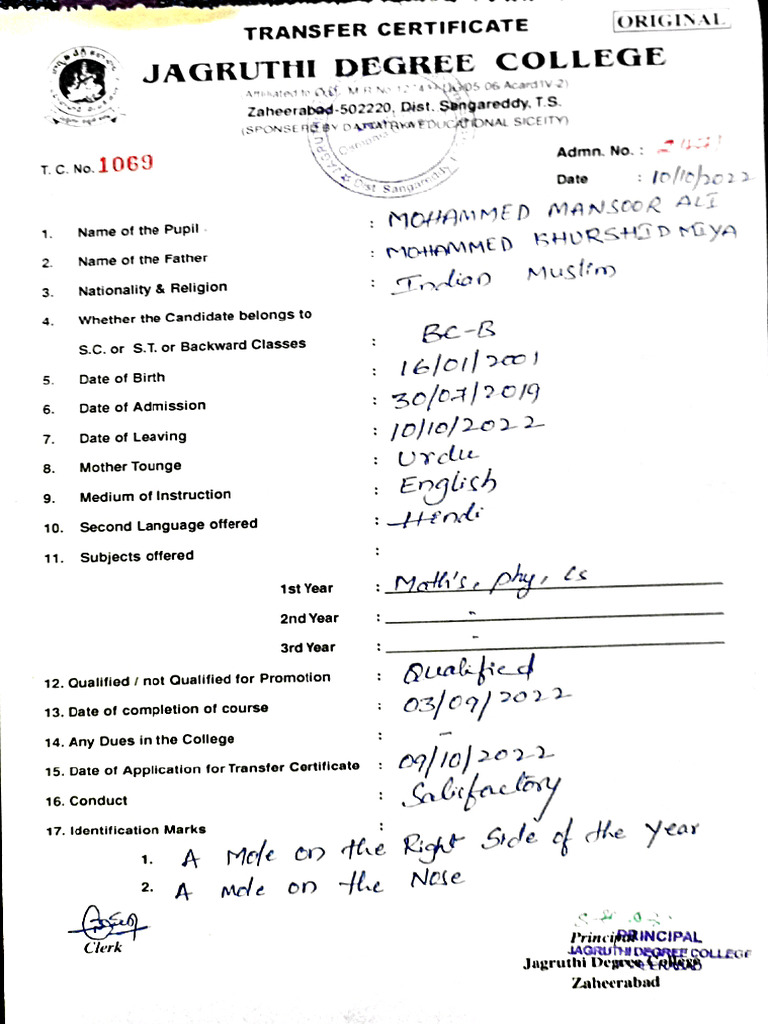 TRANSFER CERTIFICATE
ORIGINAL
JAGRUTHI DEGREE COLLEGE
Affiliated to O.U.
Zaheerabad-502220, Dist. Sangareddy, T.S.
(SPONSERD BY DATTATRYA EDUCATIONAL SICEITY)
Dist Sangareddy
T. C. No. 1069
Admn. No. :
Date : 10/10/2022
1. Name of the Pupil : MOHAMMED MANSOOR ALI
2. Name of the Father : MOHAMMED KHURSHID MIYA
3. Nationality & Religion : Indian Muslim
4. Whether the Candidate belongs to
S.C. or S.T. or Backward Classes : BC-B
5. Date of Birth : 16/01/2001
6. Date of Admission : 30/07/2019
7. Date of Leaving : 10/10/2022
8. Mother Tounge : Urdu
9. Medium of Instruction : English
10. Second Language offered : Hindi
11. Subjects offered :
1st Year : Math's, phy, cs
2nd Year : "
3rd Year : "
12. Qualified / not Qualified for Promotion : Qualified
13. Date of completion of course : 03/09/2022
14. Any Dues in the College : -
15. Date of Application for Transfer Certificate : 09/10/2022
16. Conduct : Satisfactory
17. Identification Marks :
1. A Mole on the Right Side of the Year
2. A mole on the Nose
Clerk
Principal
PRINCIPAL
JAGRUTHI DEGREE COLLEGE
Jagruthi Degree College
Zaheerabad